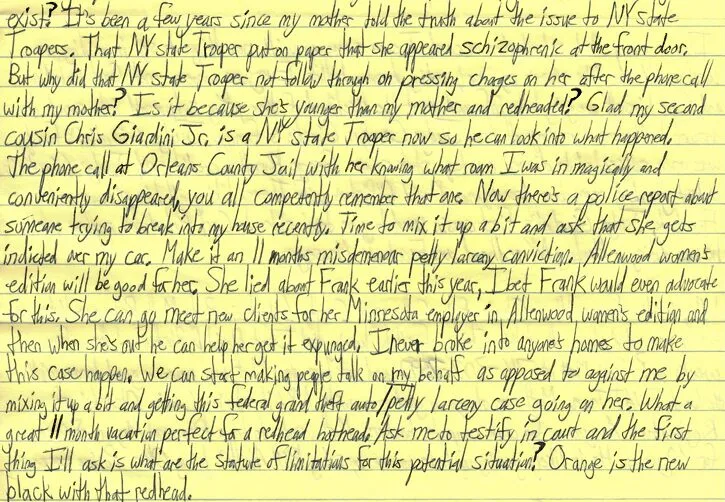 exist? It's been a few years since my mother told the truth about the issue to NY state
Troapers. That NY state Trooper put on paper that she appeared schizophrenic at the front door.
But why did that NY state Trooper not follow through on pressing charges on her after the phone call
with my mother? Is it because she's younger than my mother and redheaded? Glad my second
cousin Chris Giardini Jr. is a NY state Trooper now so he can look into what happened.
The phone call at Orleans County Jail with her knowing what room I was in magically and
conveniently disappeared, you all competently remember that one. Now there's a police report about
someone trying to break into my house recently. Time to mix it up a bit and ask that she gets
indicted over my car. Make it an 11 months misdemenor petty larceny conviction. Allenwood women's
edition will be good for her. She lied about Frank earlier this year, I bet Frank would even advocate
for this. She can go meet new clients for her Minnesota employer in Allenwood women's edition and
then when she's out he can help her get it expunged. I never broke into anyone's homes to make
this case happen. We can start making people talk on my behalf as opposed to against me by
mixing it up a bit and getting this federal grand theft auto/petty larceny case going on her. What a
great 11 month vacation perfect for a redhead hothead. Ask me to testify in court and the first
thing I'll ask is what are the statute of limitations for this potential situation? Orange is the new
black with that redhead.